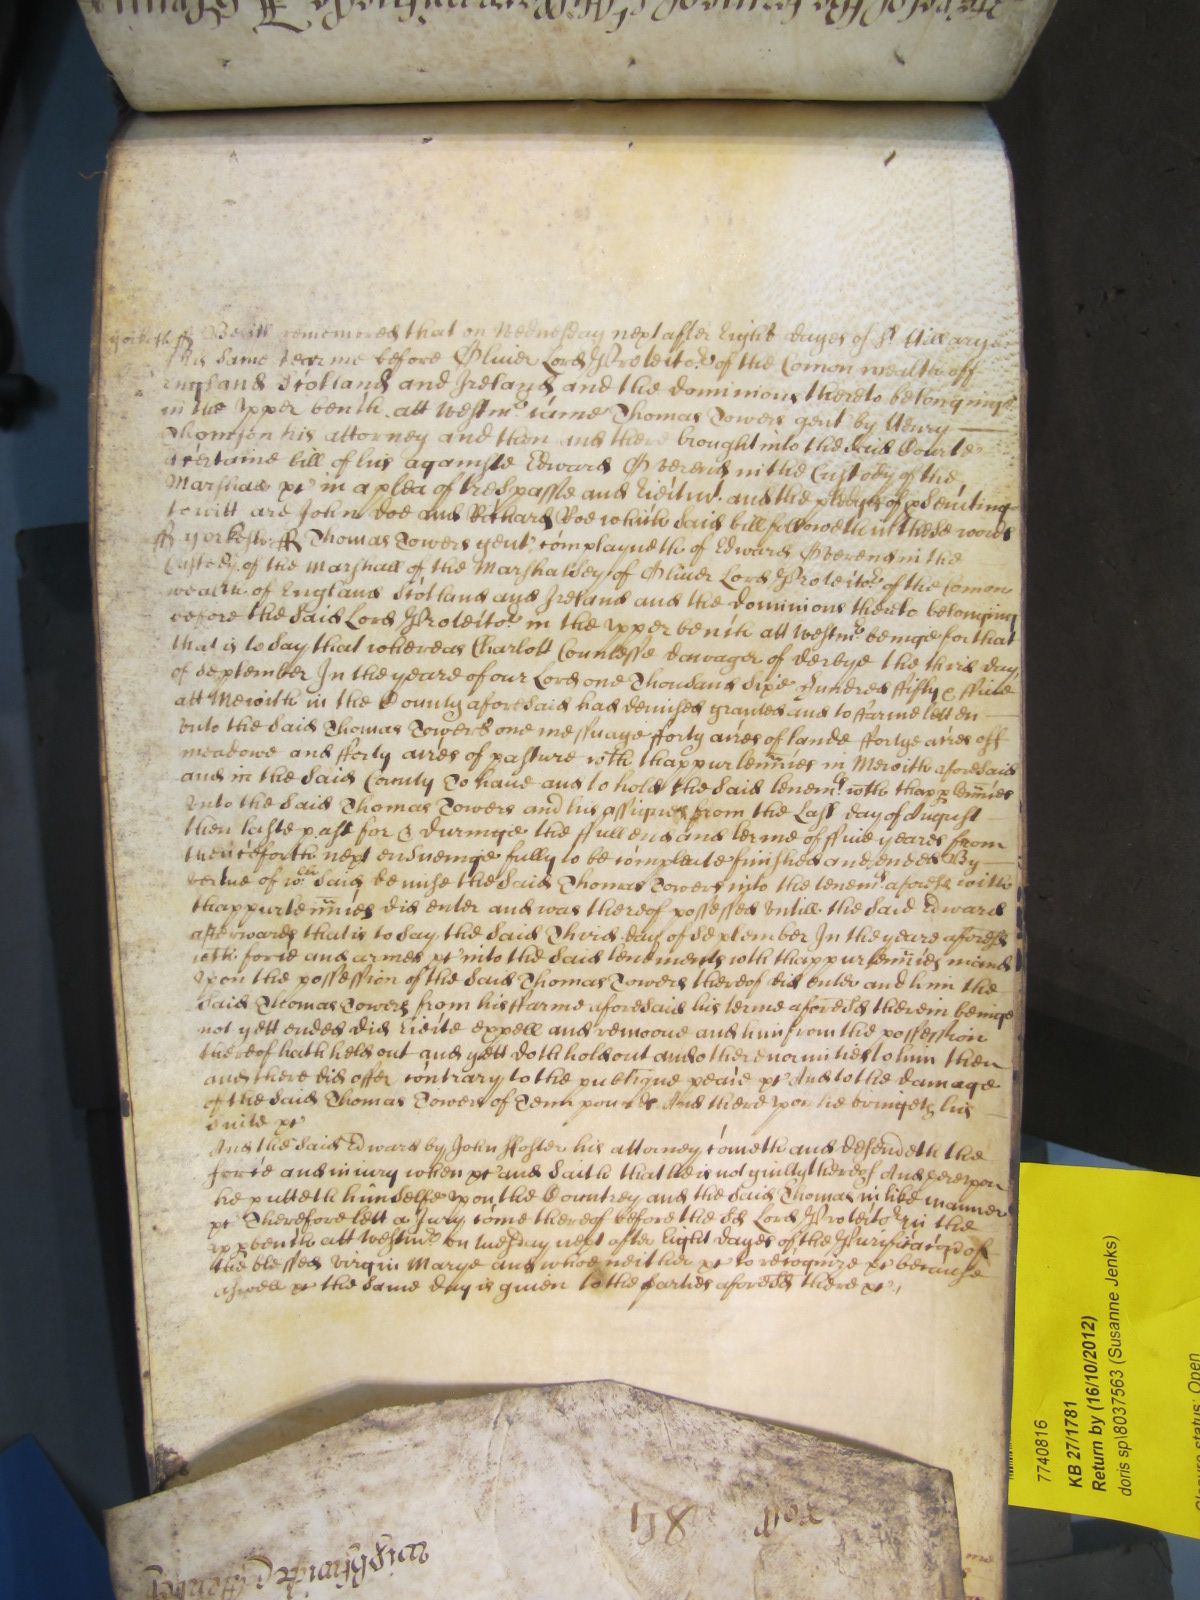 yorksh ss Be itt remembred that on Wednesday next after Eight dayes of St Hillarye
this same terme before Oliver Lord Protector of the Comon wealth off
England Scotland and Ireland and the dominions thereto belonginge
in the upper bench att Westmr came Thomas Towers gent by Henry
Thomson his attorney and then and there brought into the said Courte
a certaine bill of his againste Edward Overend in the Custody of the
Marshall &c in a plea of trespasse and Eiectmt and the pledges of psecuting
to witt are John Doe and Richard Roe which said bill followeth in these words
ss yorkesh ss Thomas Towers gent complayneth of Edward Overend in the
Custody of the Marshall of the Marshalsey of Oliver Lord Protector of the Comon
wealth of England Scotland and Ireland and the dominions thereto belonging
before the said Lord Protector in the upper bench att Westmr beinge for that
that is to say that whereas Charlott Countesse dowager of derbye the third day
of September In the yeare of our Lord one Thousand Sixe hundred ffifty & ffive
att Mewith in the County aforesaid had demised granted and to ffarme letten
unto the said Thomas Towers one messuage fforty acres of lande ffortye acres off
meadowe and fforty acres of pasture with thappurtennces in Mewith aforesaid
and in the said County To have and to hold the said tenemts with thapptennces
unto the said Thomas Towers and his assignes from the Last day of August
then laste past for & duringe the ffull end and terme of ffive yeares from
thenceforth next ensueinge fully to be compleate finished and ended By
vertue of wch said demise the said Thomas Towers into the tenemts aforesd with
thappurtennces did enter and was thereof possessed untill the said Edward
afterwards that is to say the said Third day of September In the yeare aforesd
with force and armes &c into the said tenements with thappurtennces in and
upon the possession of the said Thomas Towers thereof did enter and him the
said Thomas Towers from his ffarme aforesaid his terme aforesd therein beinge
not yett ended did Eiecte expell and remoove and him from the possession
thereof hath held out and yett doth hold out and other enormities to him then
and there did offer contrary to the publique peace &c And to the damage
of the said Thomas Towers of Tenn pounds And thereupon he bringeth his
suite &c
And the said Edward by John ffoster his attorney cometh and defendeth the
force and iniury when &c and saith that he is not guilty thereof And hereupon
he putteth himselfe upon the Countrey and the said Thomas in like manner
&c Therefore lett a Jury come thereof before the sd Lord Protector in the
upp bench att Westmr on tuesday next after Eight dayes of the Purificacon of
the blessed virgin Marye and whoe neither &c to recognize &c because
aswell &c the same day is given to the parties aforesd there &c
Roll 817
7740816
KB 27/1781
Return by (16/10/2012)
doris sp\8037563 (Susanne Jenks)
Closure status: Open